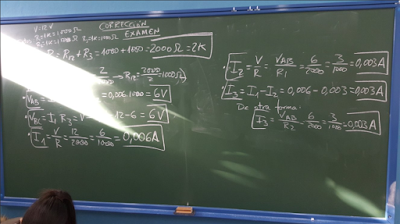 CORRECCIÓN
EXAMEN
V=12V
R = R12 + R3 = 1000 + 1000 = 2000 Ω = 2K
VAB = 0,006·1000 = 6V
VBC = I1 R3 = 12-6 = 6V
I1 = V/R = 12/2000 = 6/1000 = 0,006A
I2 = V/R = VAB/R1 = 6/2000 = 3/1000 = 0,003A
I3 = I1 - I2 = 0,006 - 0,003 = 0,003A
De otra forma:
I3 = VAB/R2 = 6/2000 = 3/1000 = 0,003A